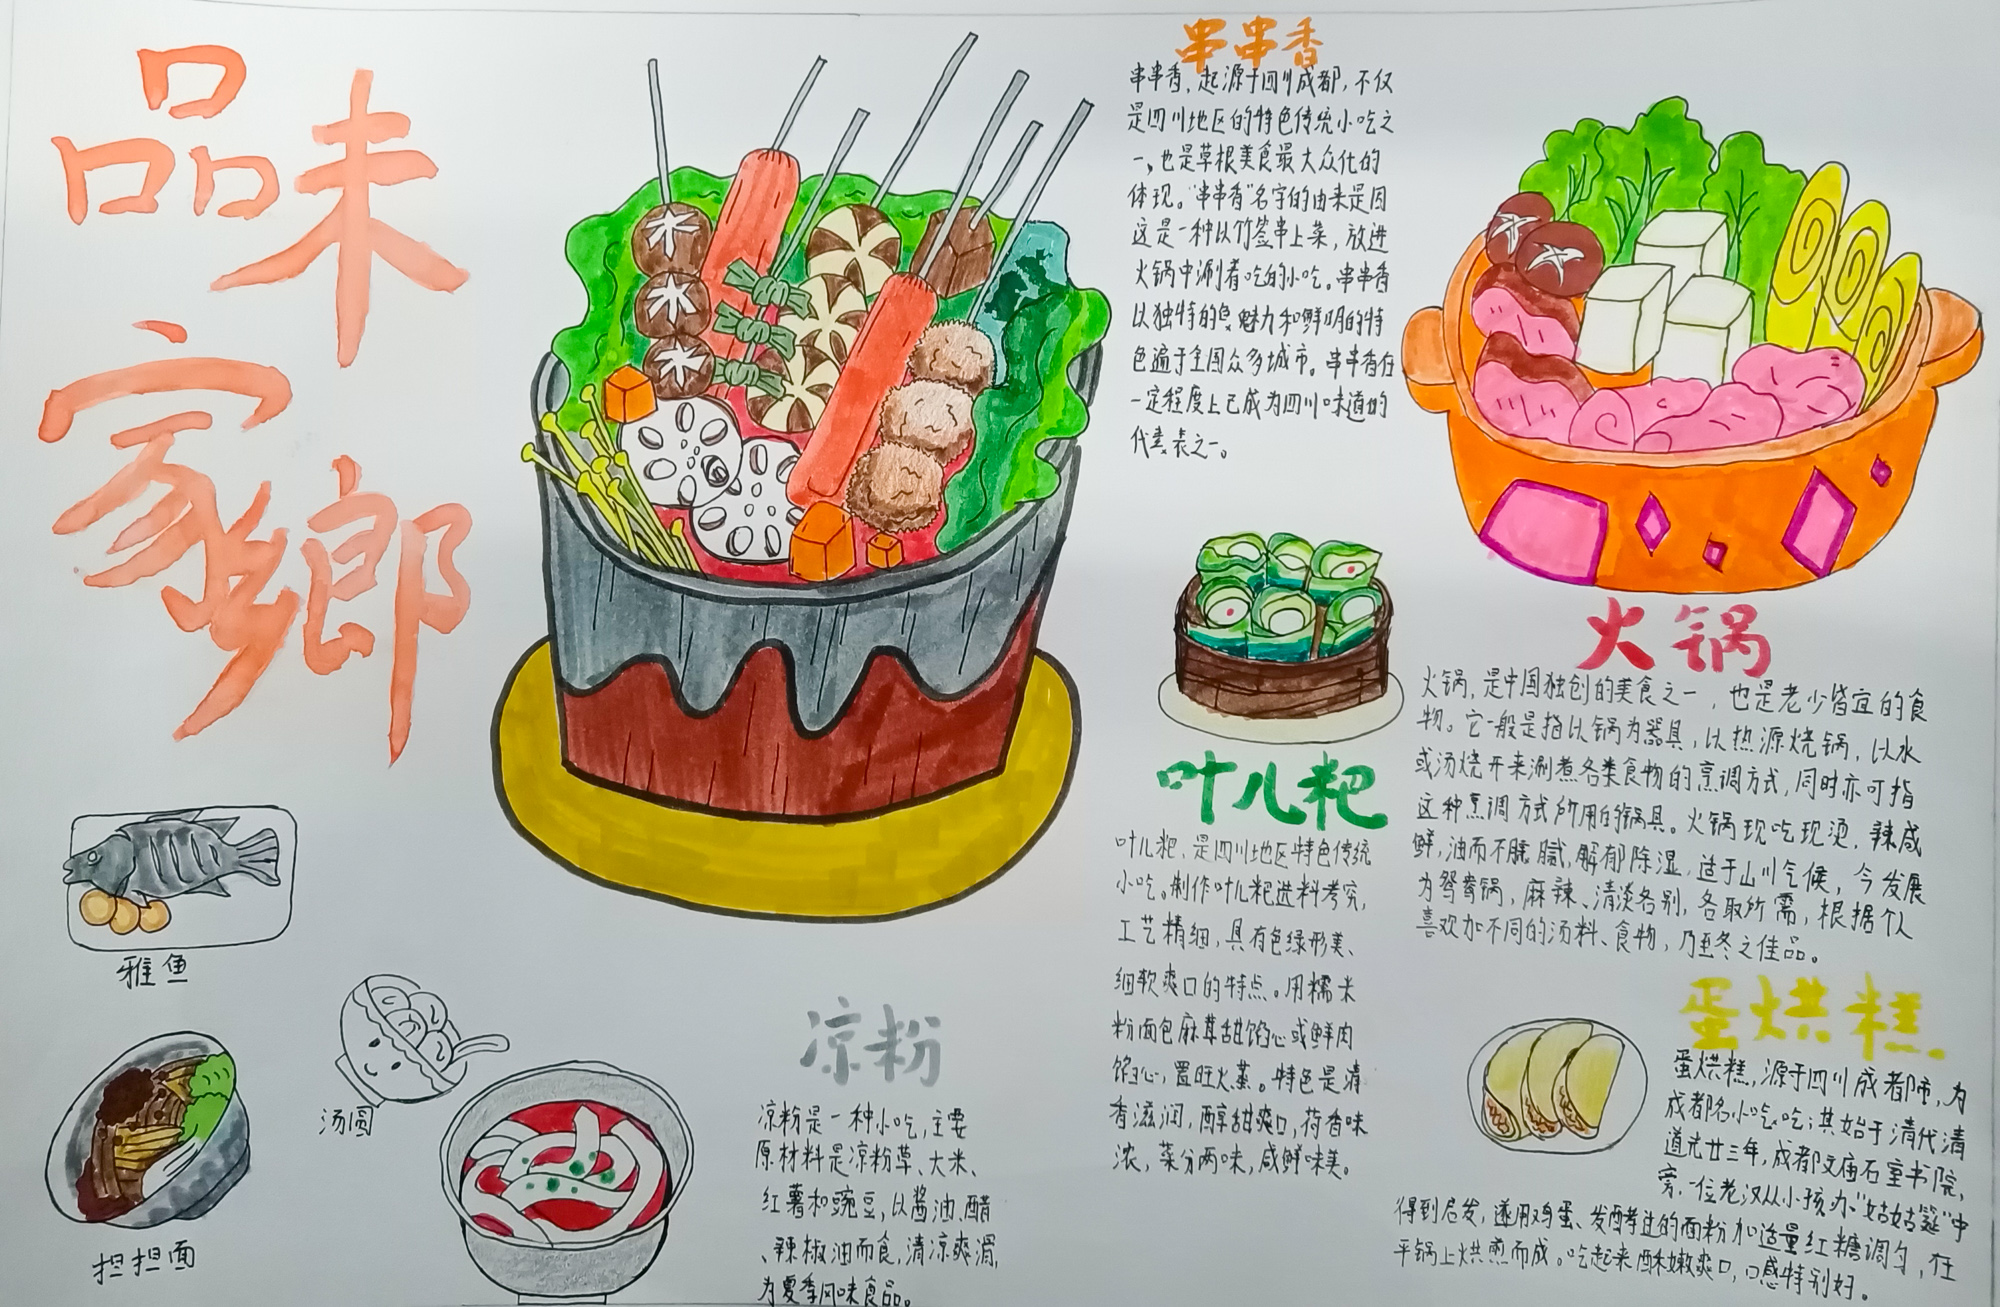 品味
家鄉
串串香
串串香，起源于四川成都，不仅
是四川地区的特色传统小吃之
一，也是草根美食最大众化的
体现。“串串香”名字的由来是因
这是一种以竹签串上菜，放进
火锅中涮着吃的小吃。串串香
以独特的魅力和鲜明的特
色遍于全国众多城市。串串香在
一定程度上已成为四川味道的
代表之一。
火锅
火锅，是中国独创的美食之一，也是老少皆宜的食
物。它一般是指以锅为器具，以热源烧锅，以水
或汤烧开来涮煮各类食物的烹调方式，同时亦可指
这种烹调方式所用的锅具。火锅现吃现烫，辣咸
鲜，油而不腻，解郁除湿，适于山川气候，今发展
为鸳鸯锅，麻辣、清淡各别，各取所需，根据个人
喜欢加不同的汤料、食物，乃至冬之佳品。
叶儿粑
叶儿粑，是四川地区特色传统
小吃。制作叶儿粑进料考究，
工艺精细，具有色绿形美、
细软爽口的特点。用糯米
粉面包麻茸甜馅心或鲜肉
馅心，置旺火蒸。特色是清
香滋润，醇甜爽口，荷香味
浓，菜分两味，咸鲜味美。
蛋烘糕
蛋烘糕，源于四川成都市，为
成都名小吃，其始于清代清
道光廿三年，成都文庙石室书院
旁，一位老汉从小孩办“姑姑筵”中
得到启发，遂用鸡蛋、发酵过的面粉加适量红糖调匀，在
平锅上烘煎而成。吃起来酥嫩爽口，口感特别好。
凉粉
凉粉是一种小吃，主要
原材料是凉粉草、大米、
红薯和豌豆，以酱油、醋
、辣椒油而食，清凉爽滑，
为夏季风味食品。
雅鱼
汤圆
担担面